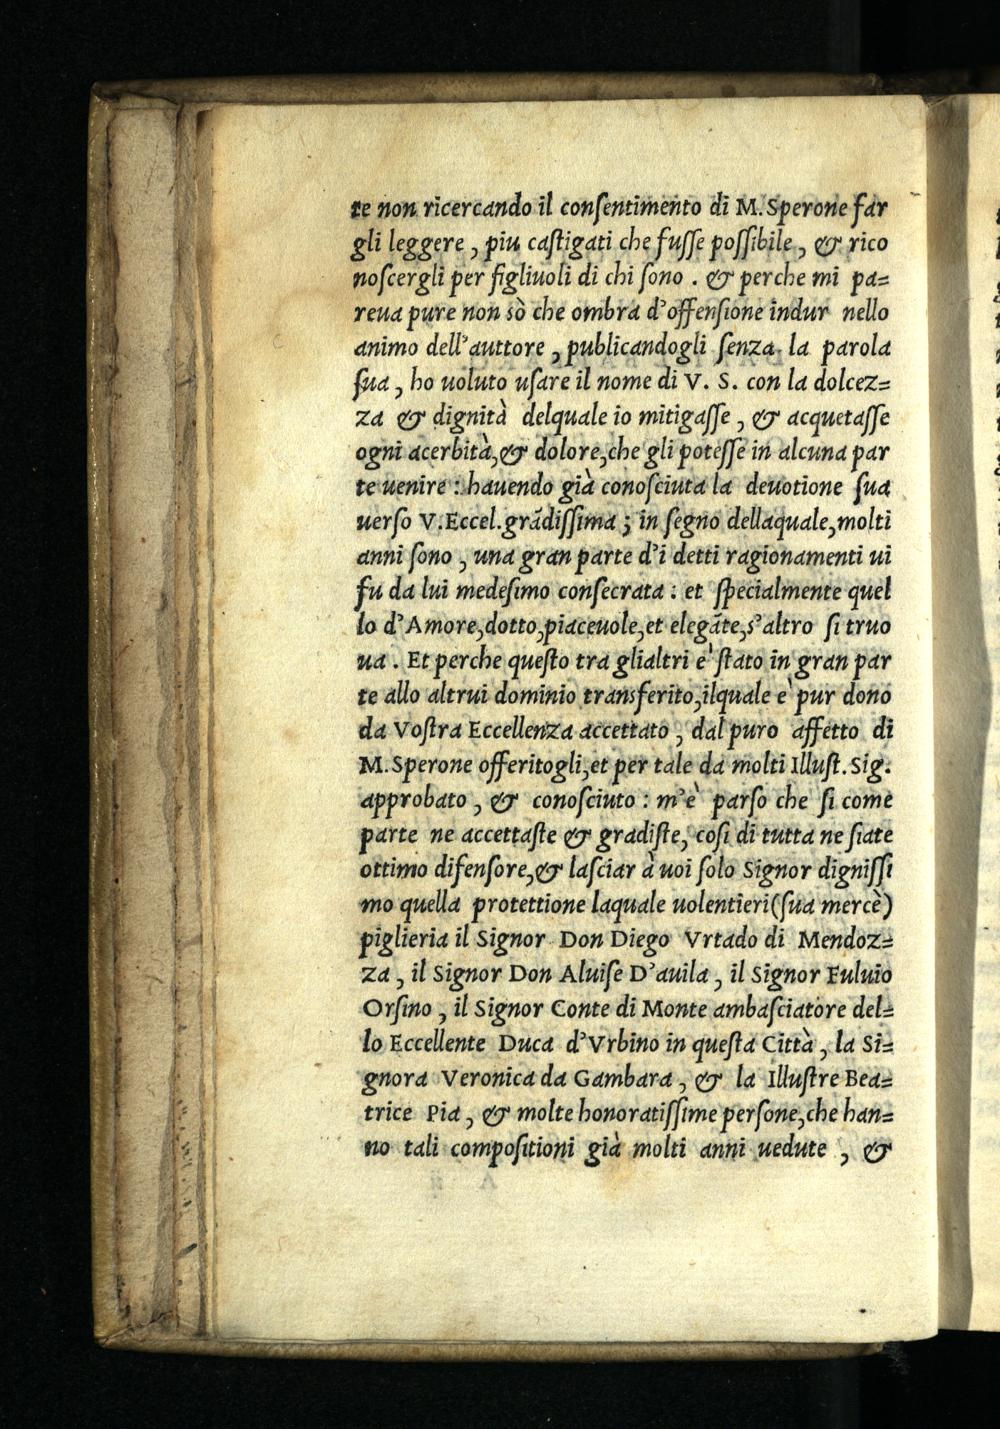 te non ricercando il consentimento di M.Sperone far
gli leggere , piu castigati che fusse possibile , & rico
noscergli per figliuoli di chi sono . & perche mi pa=
reua pure non sò che ombra d'offensione indur nello
animo dell'auttore , publicandogli senza la parola
sua , ho uoluto usare il nome di V. S. con la dolcez=
za & dignità delquale io mitigasse , & acquetasse
ogni acerbità,& dolore,che gli potesse in alcuna par
te uenire : hauendo già conosciuta la deuotione sua
uerso V.Eccel.grãdissima ; in segno dellaquale,molti
anni sono , una gran parte d'i detti ragionamenti ui
fu da lui medesimo consecrata : et specialmente quel
lo d'Amore,dotto,piaceuole,et elegãte,s'altro si truo
ua . Et perche questo tra glialtri e' stato in gran par
te allo altrui dominio transferito,ilquale e' pur dono
da Vostra Eccellenza accettato , dal puro affetto di
M.Sperone offeritogli,et per tale da molti Illust.Sig.
approbato , & conosciuto : m'è parso che si come
parte ne accettaste & gradiste, cosi di tutta ne siate
ottimo difensore,& lasciar à uoi solo Signor dignissi
mo quella protettione laquale uolentieri(sua mercè)
piglieria il Signor Don Diego Vrtado di Mendoz=
za , il Signor Don Aluise D'auila , il Signor Fuluio
Orsino , il Signor Conte di Monte ambasciatore del=
lo Eccellente Duca d'Vrbino in questa Città , la Si=
gnora Veronica da Gambara , & la Illustre Bea=
trice Pia , & molte honoratissime persone,che han=
no tali compositioni già molti anni uedute , &